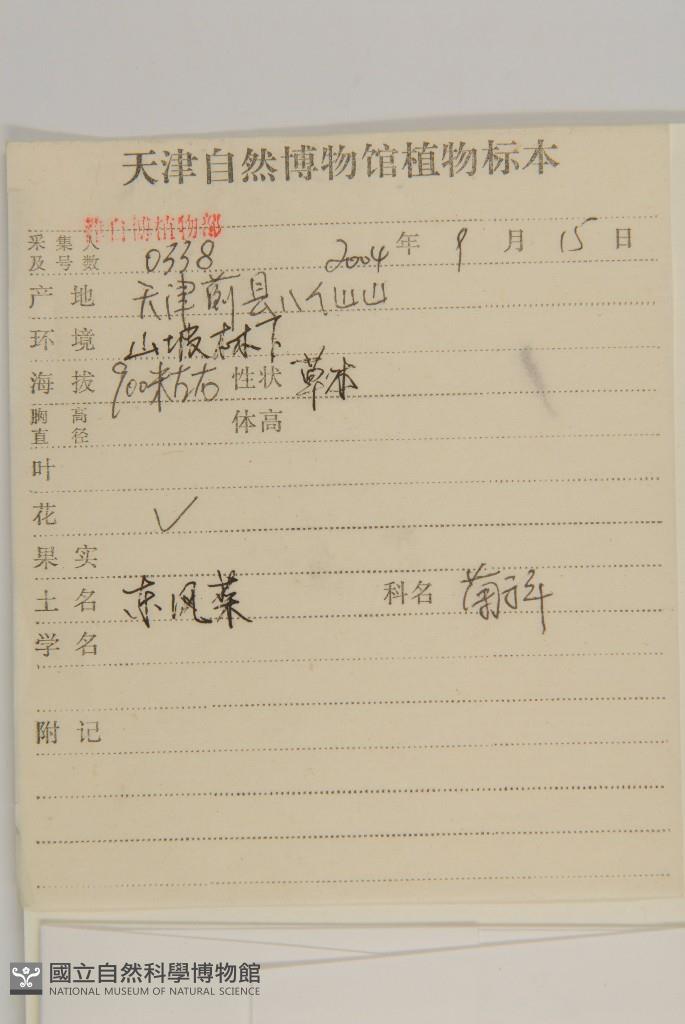 天津自然博物馆植物标本
津自博植物部
采集人
及号数 0338 2004年9月15日
产地 天津蓟县八仙山
环境 山坡林下
海拔 900米左右 性状 草本
胸高
直径 体高
叶
花 ✓
果实
土名 东风菜 科名 菊科
学名
附记
國立自然科學博物館
NATIONAL MUSEUM OF NATURAL SCIENCE